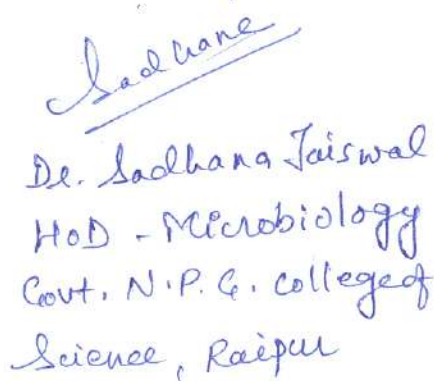 Sadhana
Dr. Sadhana Jaiswal
HoD - Microbiology
Govt. N.P.G. College of
Science, Raipur